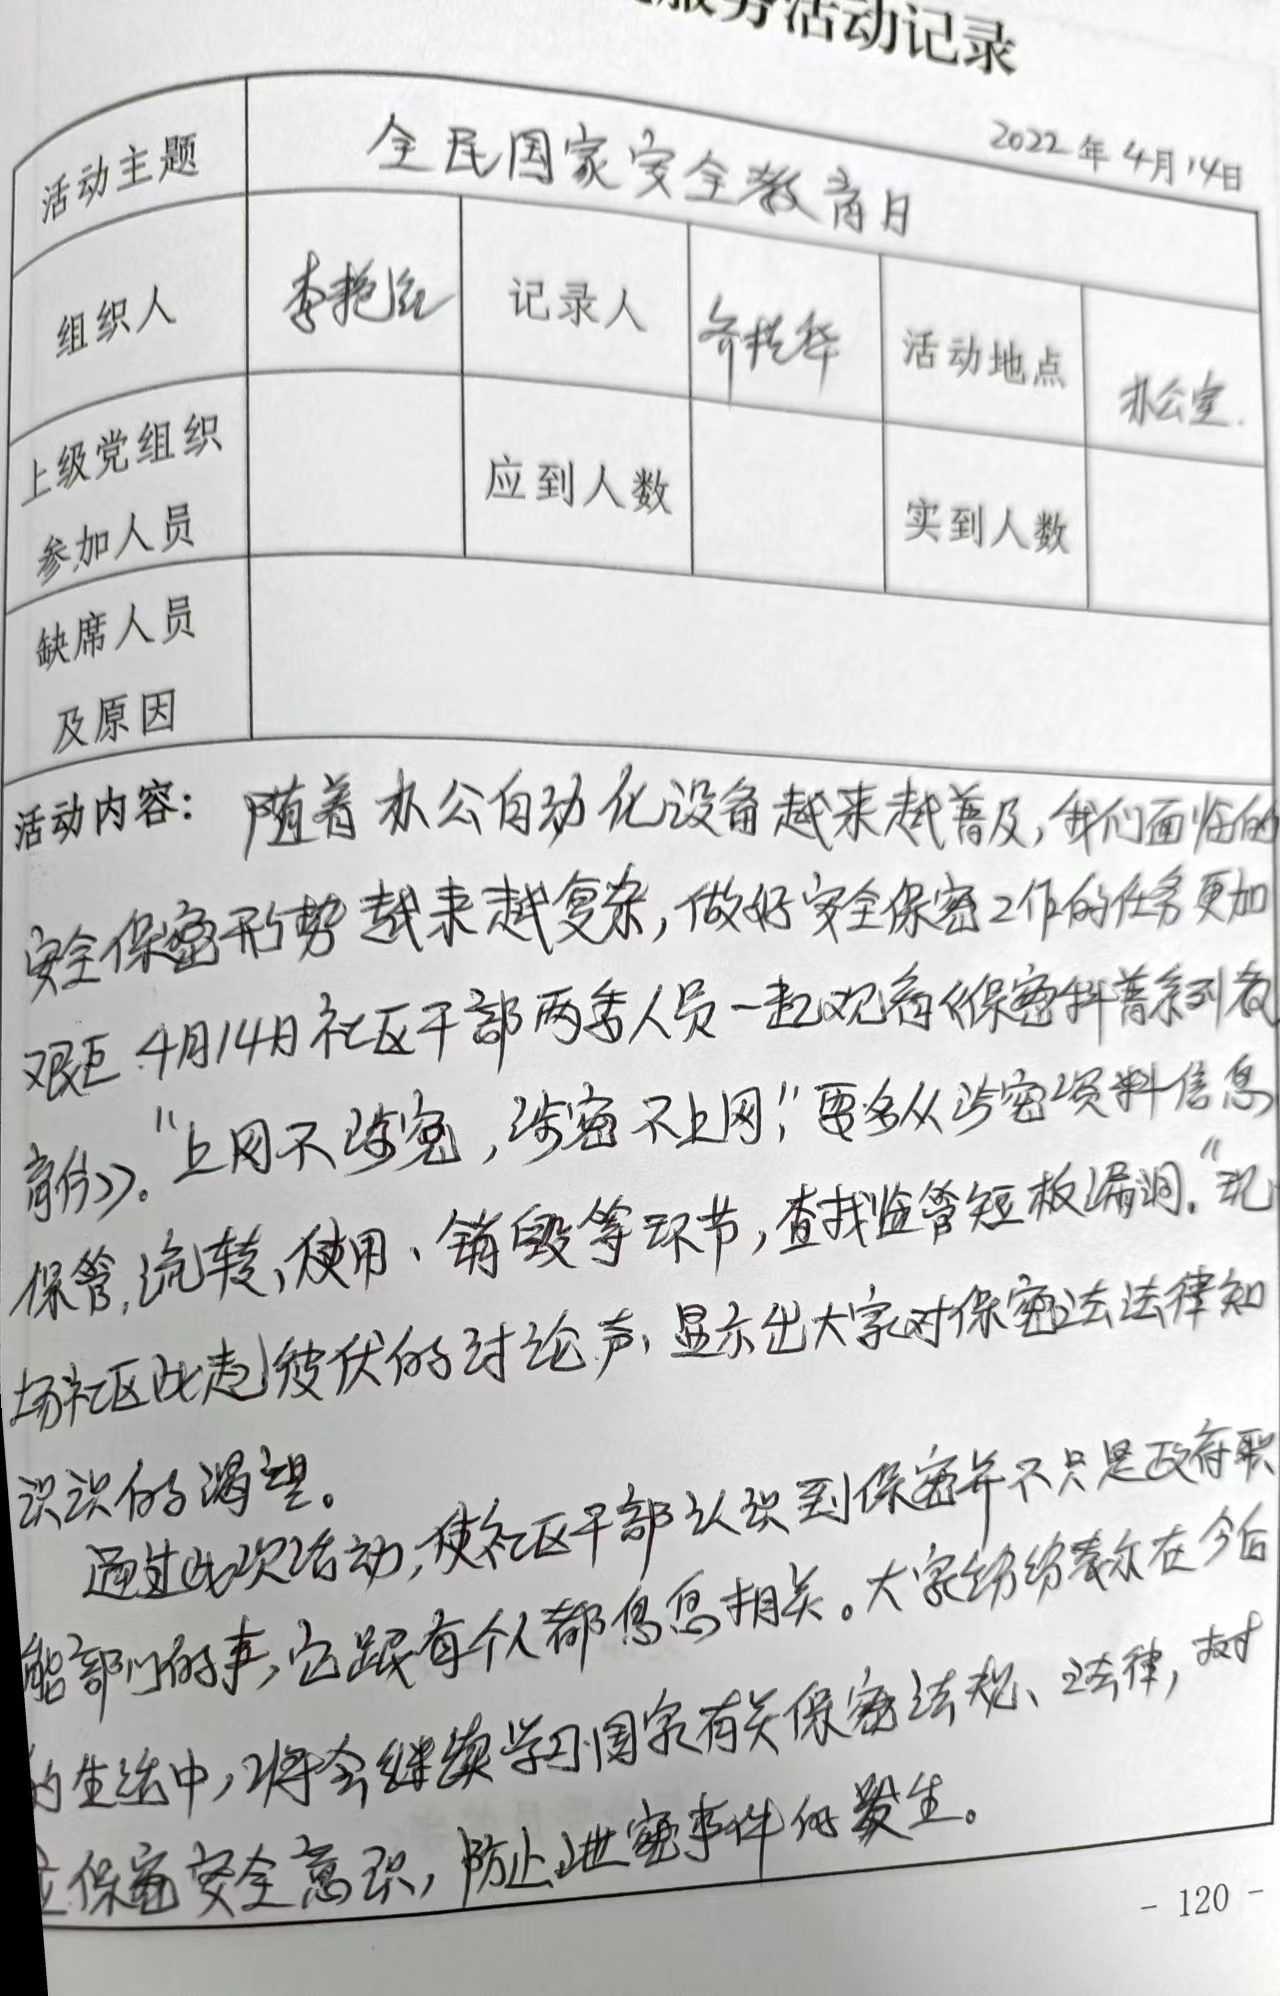 服务活动记录
2022年4月14日
活动主题 全民国家安全教育日
组织人 李艳 记录人 齐桂华 活动地点 办公室.
上级党组织
参加人员 应到人数 实到人数
缺席人员
及原因
活动内容: 随着办公自动化设备越来越普及,我们面临的
安全保密形势越来越复杂,做好安全保密工作的任务更加
艰巨.4月14日社区干部两委人员一起观看《保密科普系列教
育片》。"上网不涉密,涉密不上网!"要多从涉密资料信息
保管,流转,使用、销毁等环节,查找监管短板漏洞."现
场社区此起彼伏的讨论声,显示出大家对保密法法律知
识识的渴望。
通过此次活动,使社区干部认识到保密并不只是政府职
能部门的事,它跟有个人都息息相关。大家纷纷表示在今后
的生活中,将会继续学习国家有关保密法规、法律,树
立保密安全意识,防止泄密事件的发生。
- 120 -